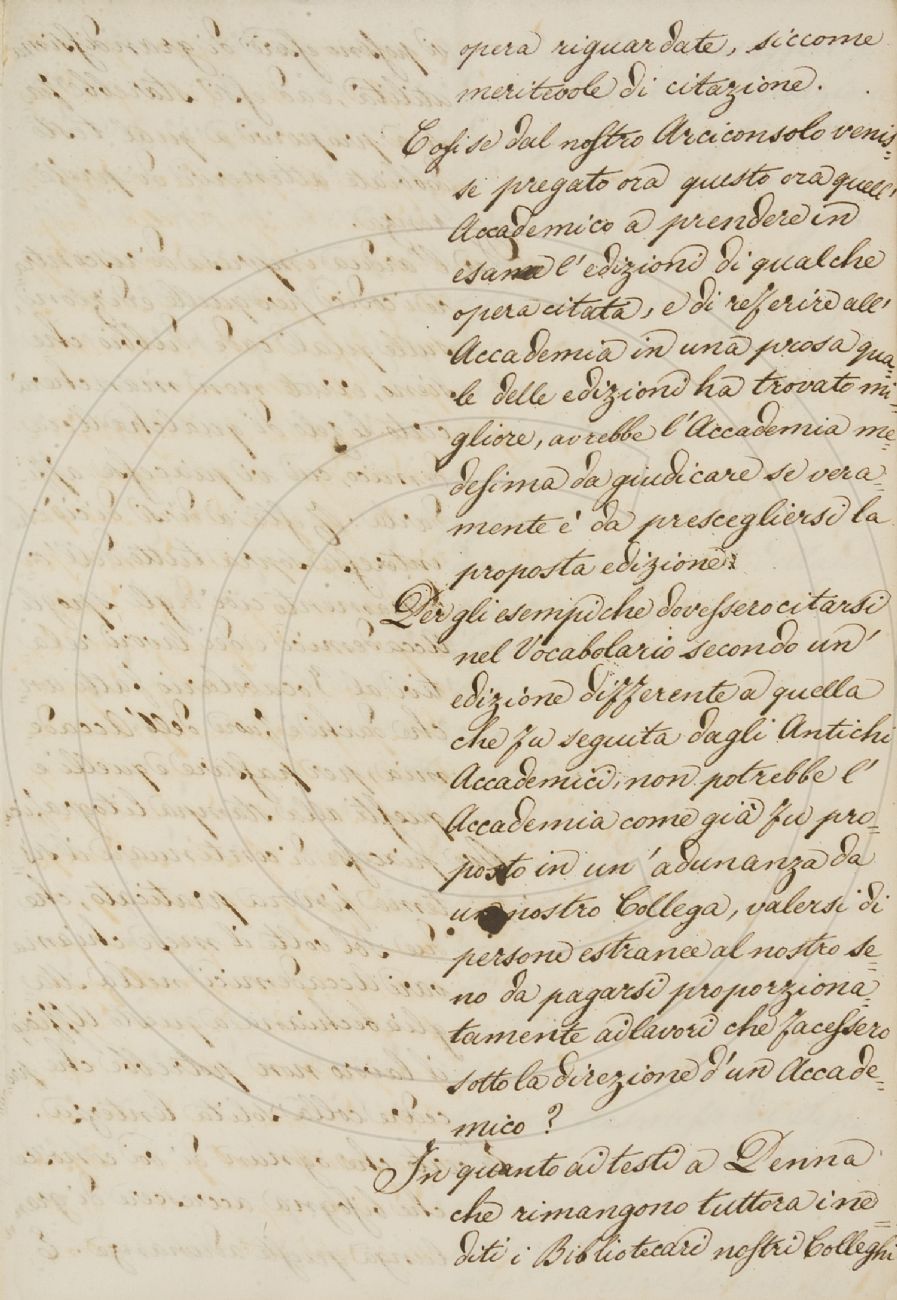 opera riguardate, siccome
meritevole di citazione.
Cosi se dal nostro Arciconsolo venis=
se pregato ora questo ora quell'
Accademico a prendere in
esame l'edizioni di qualche
opera citata, e di referire all'
Accademia in una prosa qua=
le delle edizioni ha trovato mi=
gliore, avrebbe l'Accademia me=
desima da giudicare se vera=
mente è da prescegliersi la
proposta edizione:
Per gli esempi che dovessero citarsi
nel Vocabolario secondo un'
edizione differente a quella
che fu seguita dagli Antichi
Accademici, non potrebbe l'
Accademia come già fu pro=
posto in un' adunanza da
un nostro Collega, valersi di
persone estranee al nostro se=
no da pagarsi proporziona=
tamente ai lavori che facessero
sotto la direzione d'un Accade=
mico?
In quanto ai testi a Penna
che rimangono tuttora ine=
diti i Bibliotecari nostri Colleghi